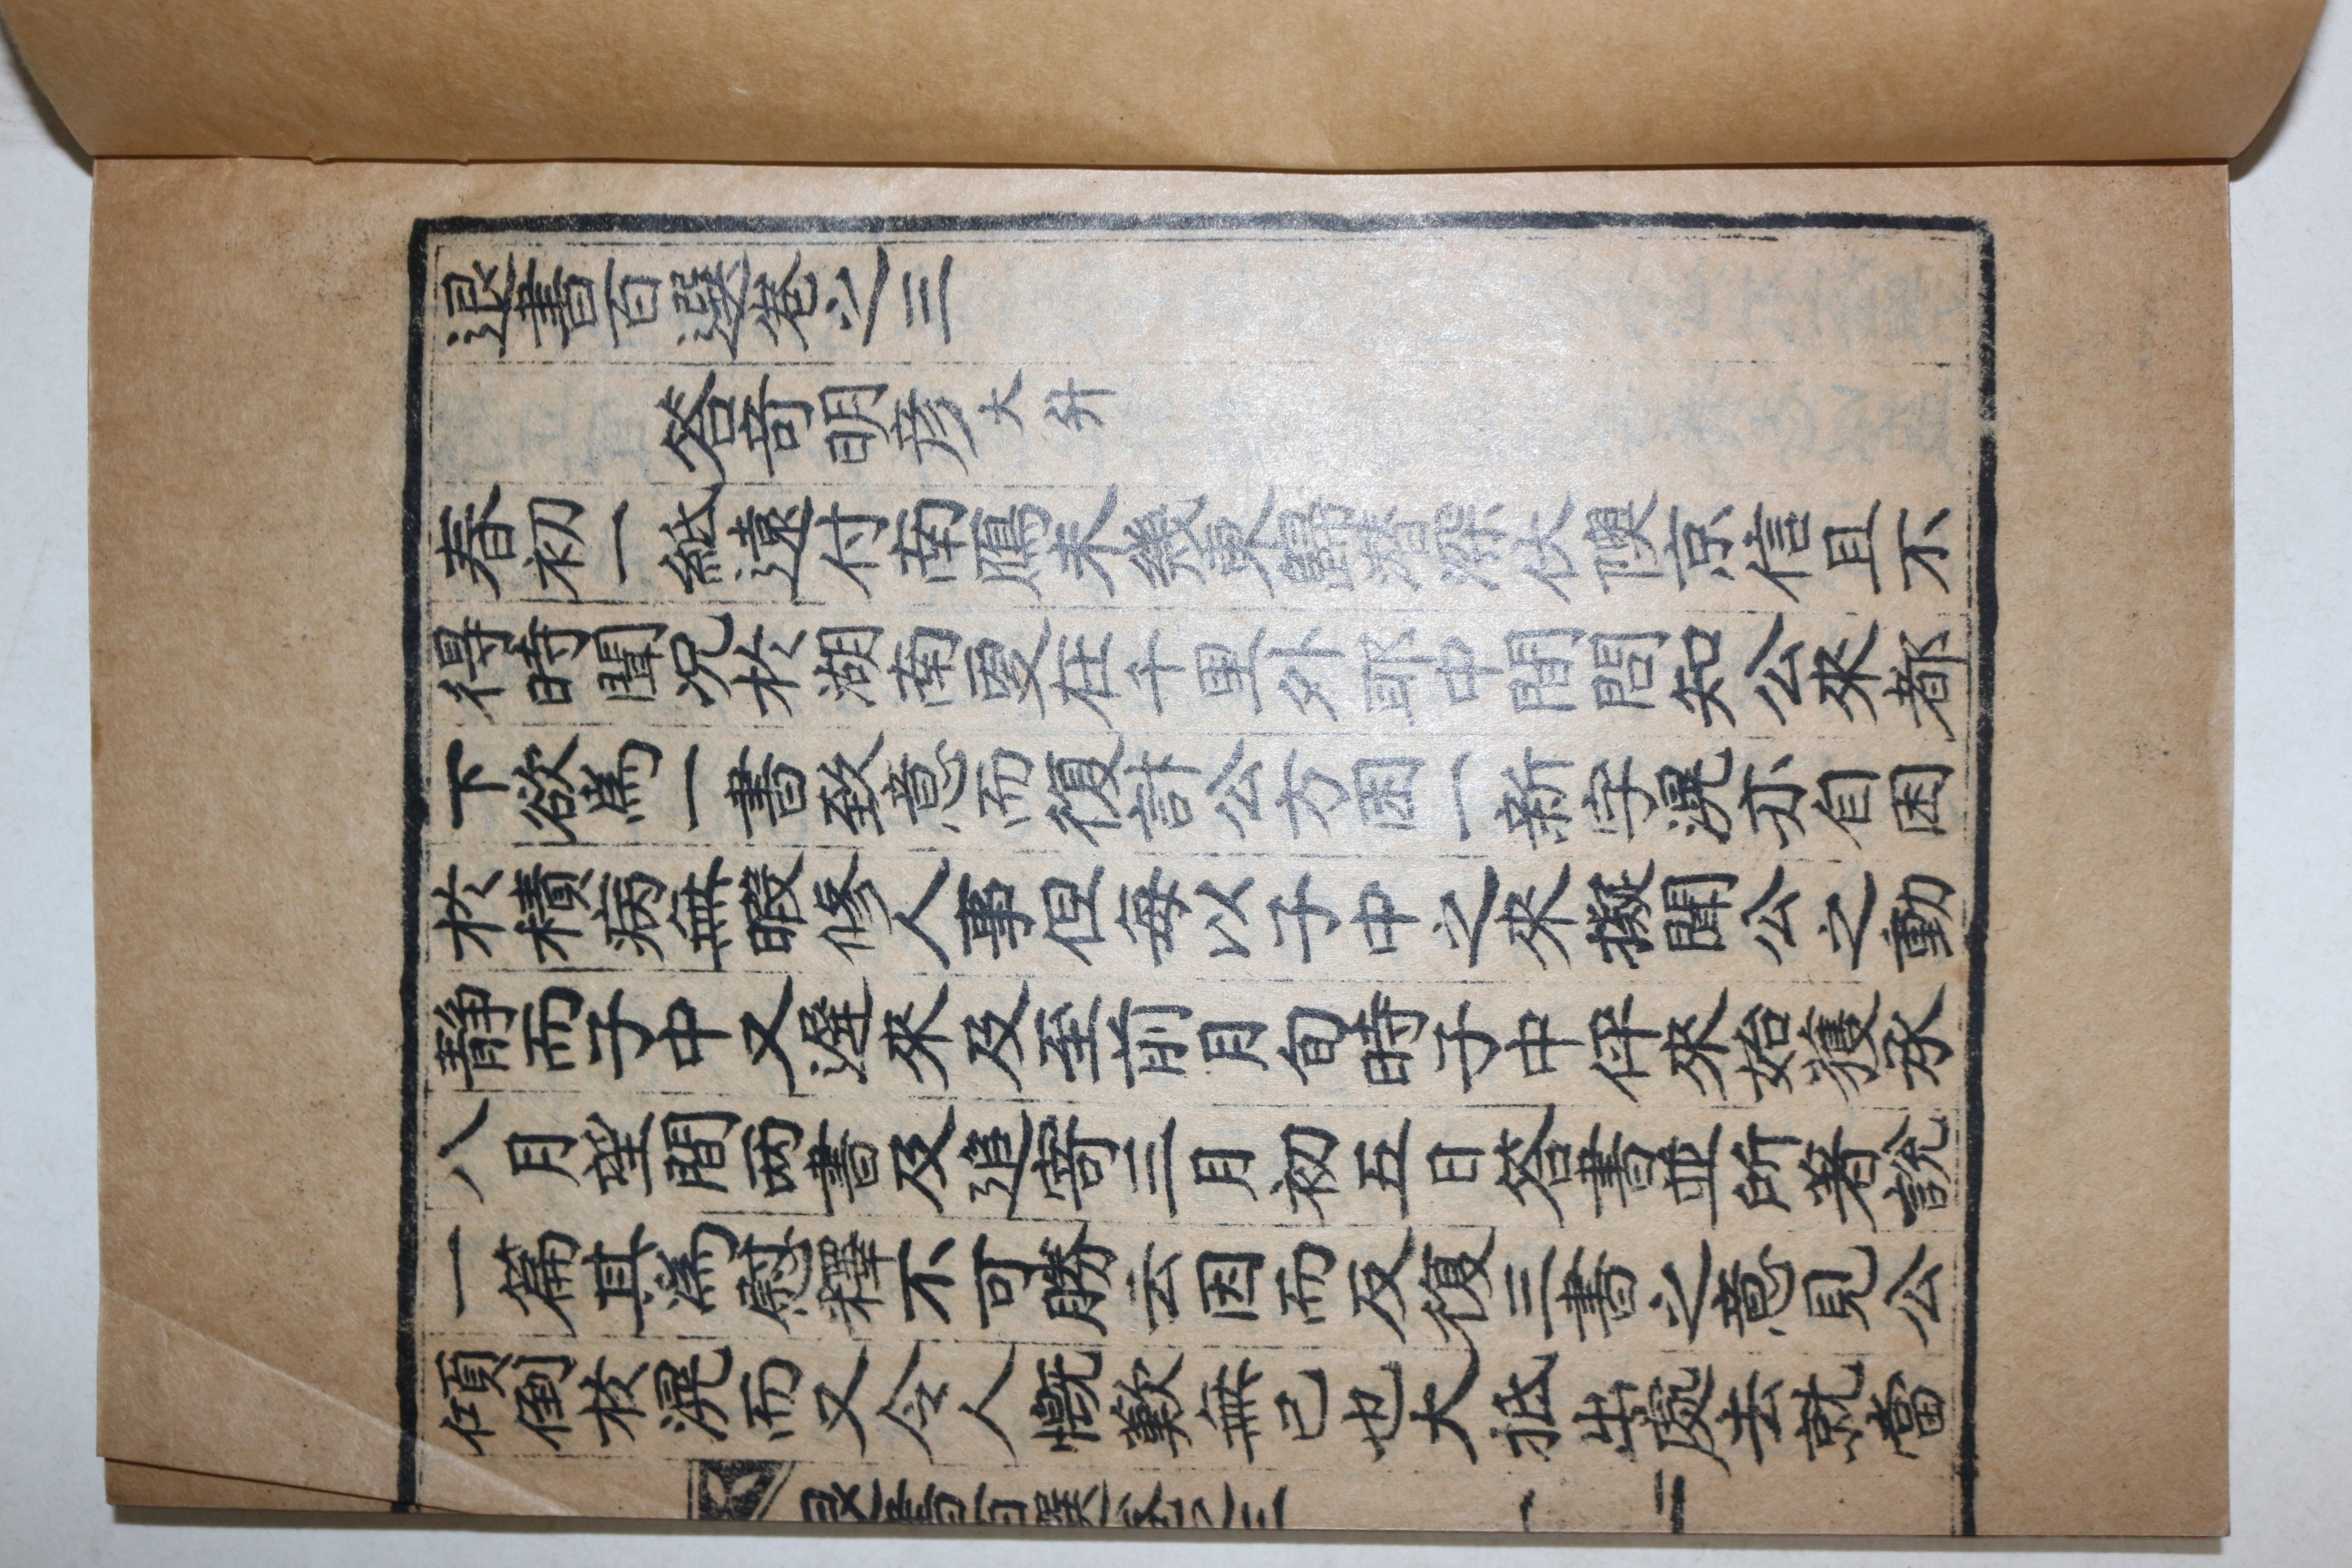 退書百選卷之三
答奇明彦大升
春初一紙遠付南鴈未幾東歸潜深伏隩京信且不
得時聞况於湖南夐在千里外耶中間問知公來都
下欲爲一書致意而復計公方困一新字滉亦自困
於積病無暇修人事但每以子中之來擬聞公之動
静而子中又遲來及至前月旬時子中伻來始獲承
八月望間两書及追寄三月初五日答書並所著說
一篇其爲慰釋不可勝云因而反復三書之意見公
傾倒於滉而又令人慨歎無已也大抵出處去就當
退書百選卷之三
一
二